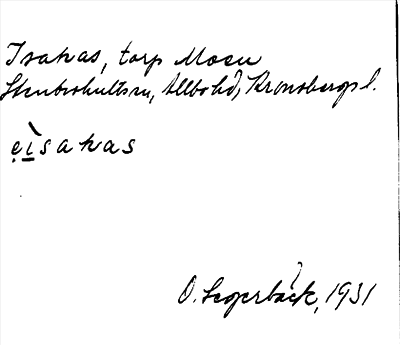 Isakas, torp Moen
Stenbrohultssn, Allbo hd, Kronobergs l.
ẹi̱̇̀sakas
O. Lagerbäck, 1931